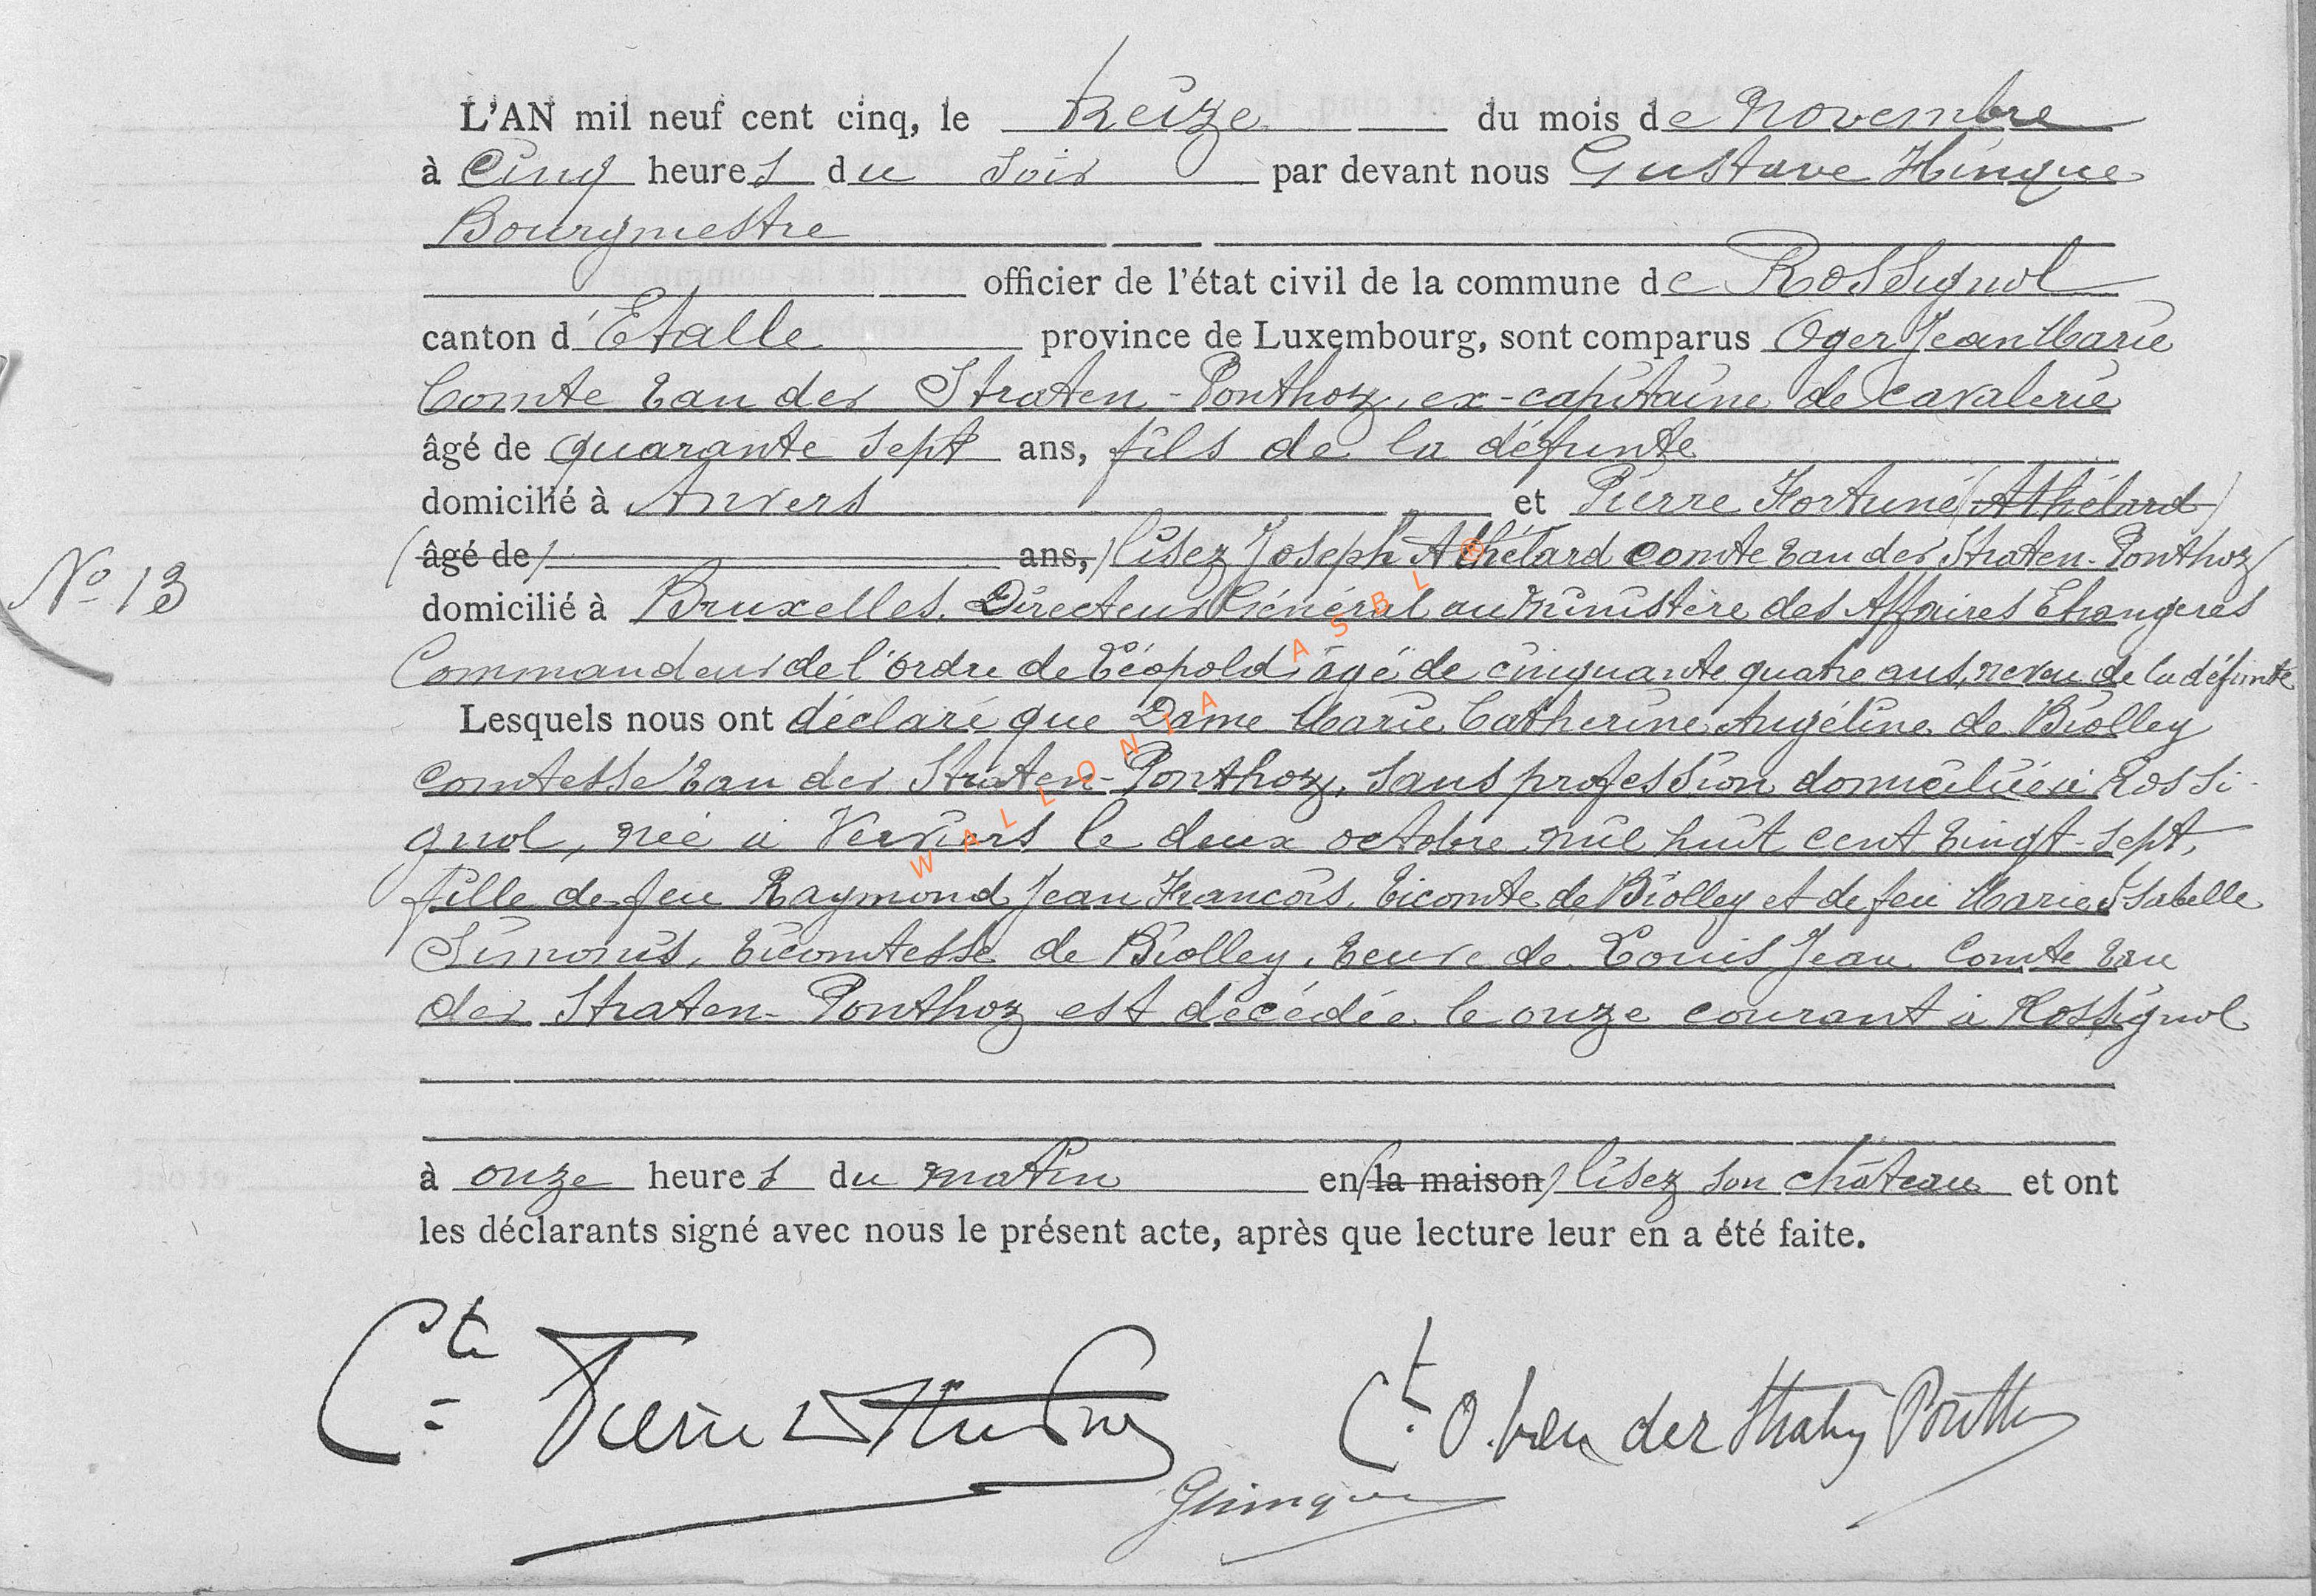 L'AN mil neuf cent cinq, le treize du mois de Novembre
à Cinq heures du soir par devant nous Gustave Hinque
Bourgmestre
officier de l'état civil de la commune de Rossignol
canton d'Etalle province de Luxembourg, sont comparus Oger Jean Marie
Comte van der Straten-Ponthoz, ex-capitaine de cavalerie
âgé de quarante sept ans, fils de la défunte
domicilié à Anvers et Pierre Fortuné (Athélard)
(âgé de) ans,) lisez Joseph Athélard comte van der Straten-Ponthoz
N° 13
domicilié à Bruxelles, Directeur Général au ministère des Affaires Etrangères
Commandeur de l'ordre de Léopold, âgé de cinquante quatre ans, neveu de la défunte
Lesquels nous ont déclaré que Dame Marie Catherine Angéline de Biolley
comtesse van der Straten-Ponthoz, sans profession domiciliée à Rossi-
gnol, née à Verviers le deux octobre mil huit cent vingt-sept,
fille de feu Raymond Jean François, vicomte de Biolley et de feu Marie Isabelle
Simonis, vicomtesse de Biolley, veuve de Louis Jean Comte van
der Straten-Ponthoz est décédée le onze courant à Rossignol
à onze heures du matin en (la maison) lisez son château et ont
les déclarants signé avec nous le présent acte, après que lecture leur en a été faite.
Cte Pierre
Ct. O. van der Straten Ponthoz
GHinque
WALLONIA ASBL ®